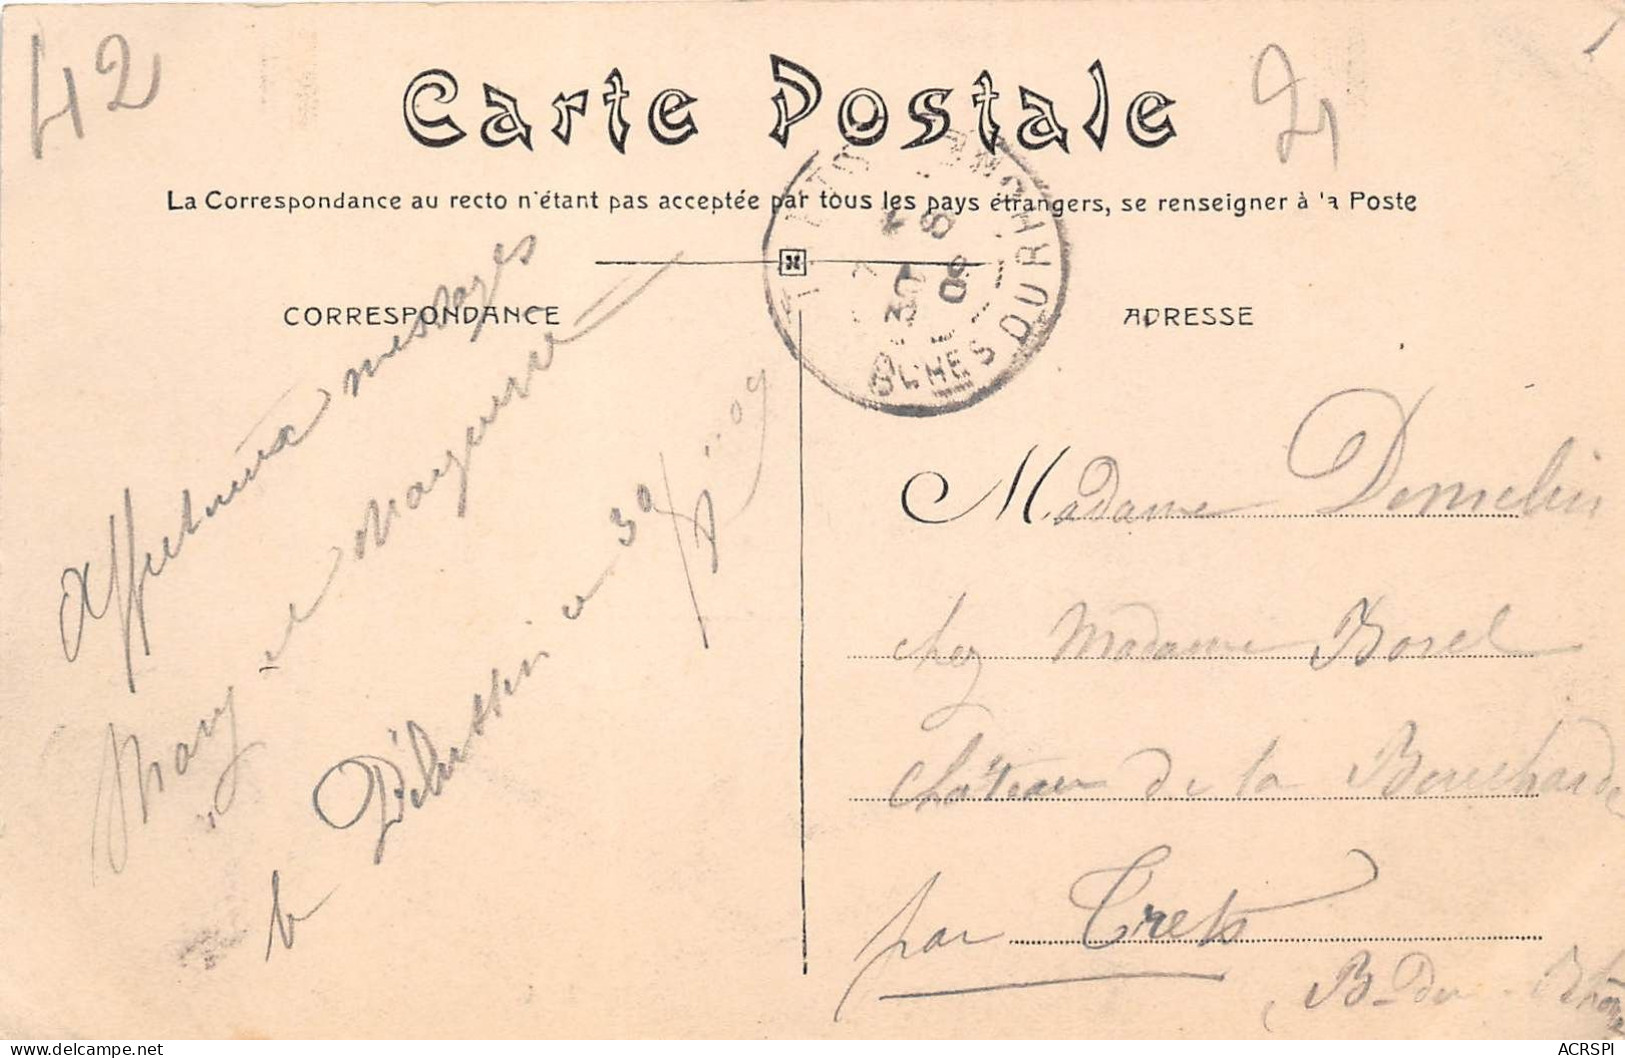 42
21
Carte Postale
La Correspondance au recto n'étant pas acceptée par tous les pays étrangers, se renseigner à la Poste
CORRESPONDANCE
ADRESSE
BCHES DU RHONE
Affectueux messages
Mary et Marguerite
Pélussin le 30
09
Madame
chez Madame Borel
Château de la Boucharde
par Trets
B. du Rhône
ACRSPI